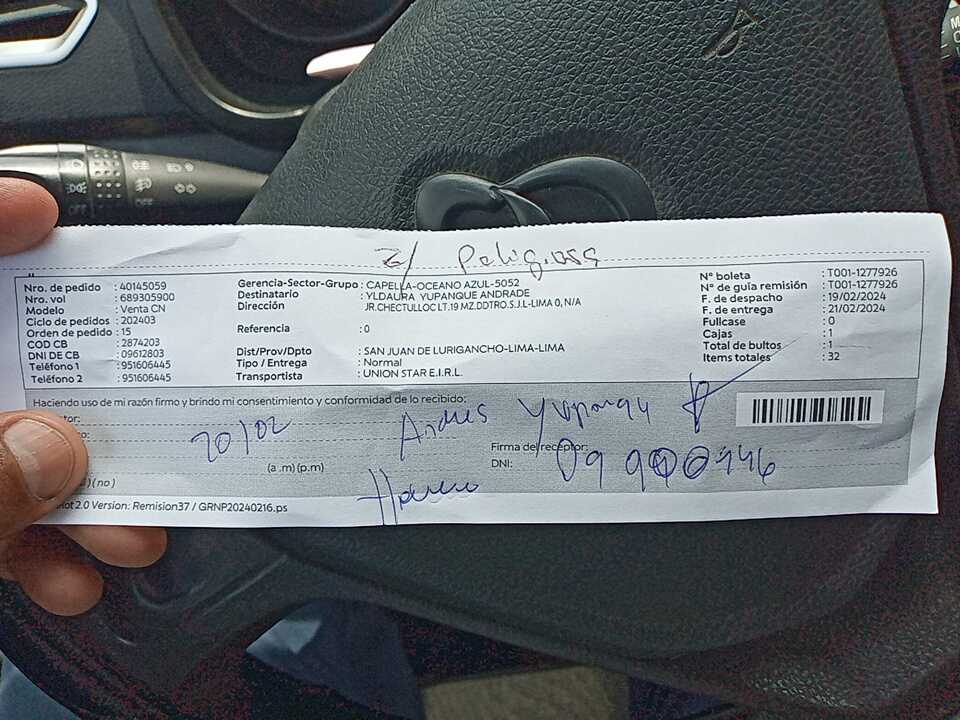 Z/ Peligrosa
Nro. de pedido : 40145059
Nro. vol : 689305900
Modelo : Venta CN
Ciclo de pedidos : 202403
Orden de pedido : 15
COD CB : 2874203
DNI DE CB : 09612803
Teléfono 1 : 951606445
Teléfono 2 : 951606445
Gerencia-Sector-Grupo : CAPELLA-OCEANO AZUL-5052
Destinatario : YLDAURA YUPANQUE ANDRADE
Dirección : JR.CHECTULLOC LT.19 MZ.DDTRO.S.J.L-LIMA 0, N/A
Referencia : 0
Dist/Prov/Dpto : SAN JUAN DE LURIGANCHO-LIMA-LIMA
Tipo / Entrega : Normal
Transportista : UNION STAR E.I.R.L.
N° boleta : T001-1277926
N° de guía remisión : T001-1277926
F. de despacho : 19/02/2024
F. de entrega : 21/02/2024
Fullcase : 0
Cajas : 1
Total de bultos : 1
Items totales : 32
Haciendo uso de mi razón firmo y brindo mi consentimiento y conformidad de lo recibido:
20/02
Andres Yupanqu
(a .m) (p.m)
Firma del receptor:
DNI:
) ( no )
2.0 Version: Remision37 / GRNP20240216.ps
OFF